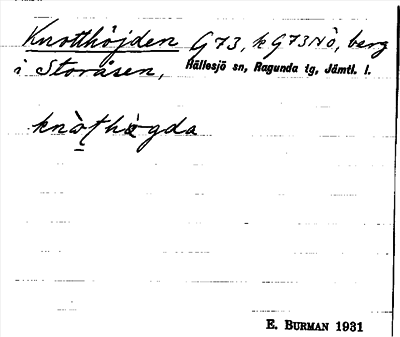 Knotthöjden G73, k G73NÖ, berg
i Storåsen, Hällesjö sn, Ragunda tg, Jämtl. l.
knòṭhøgda
E. BURMAN 1931